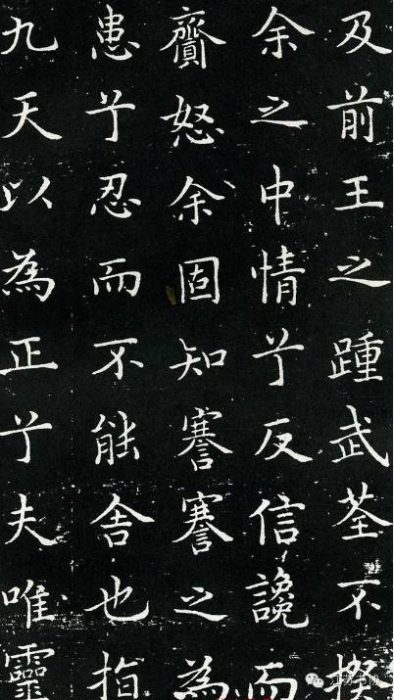 及前王之踵武荃不揆
余之中情兮反信讒而
齌怒余固知謇謇之為
患兮忍而不能舍也指
九天以為正兮夫唯靈